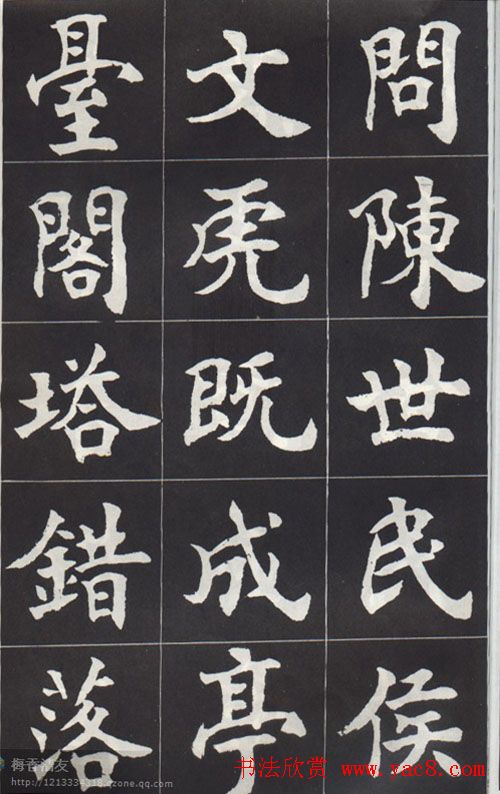 問陳世民侯
文虎既成亭
臺閣塔錯落
梅香洁友
http://1213334318.qzone.qq.com
书法欣赏 www.yac8.com